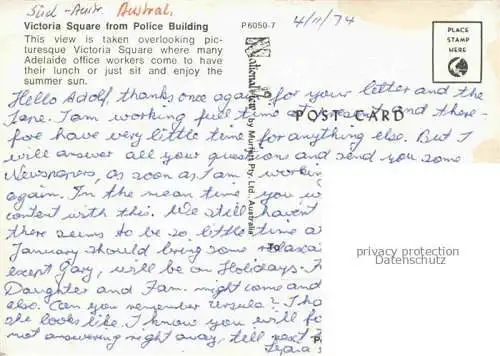 Süd-Austr. Austral.
4/11/74
Victoria Square from Police Building
P6050-7
This view is taken overlooking pic-
turesque Victoria Square where many
Adelaide office workers come to have
their lunch or just sit and enjoy the
summer sun.
PLACE
STAMP
HERE
POST CARD
National View by Murfett Pty. Ltd., Australia
Hello Adolf, thanks once again for your letter and the
Tape. I am working full time at present and there-
fore have very little time for anything else. But I
will answer all your questions and send you some
Newspapers, as soon as I am working
again. In the mean time you
content with this. We still haven't
there seems to be so little time
January should bring some relaxa
except Gary, will be on Holidays.
Daughter and Fam. might come and
also. Can you remember Ursula?
she looks like. I know you will
not answering right away, till next
To
privacy protection
Datenschutz